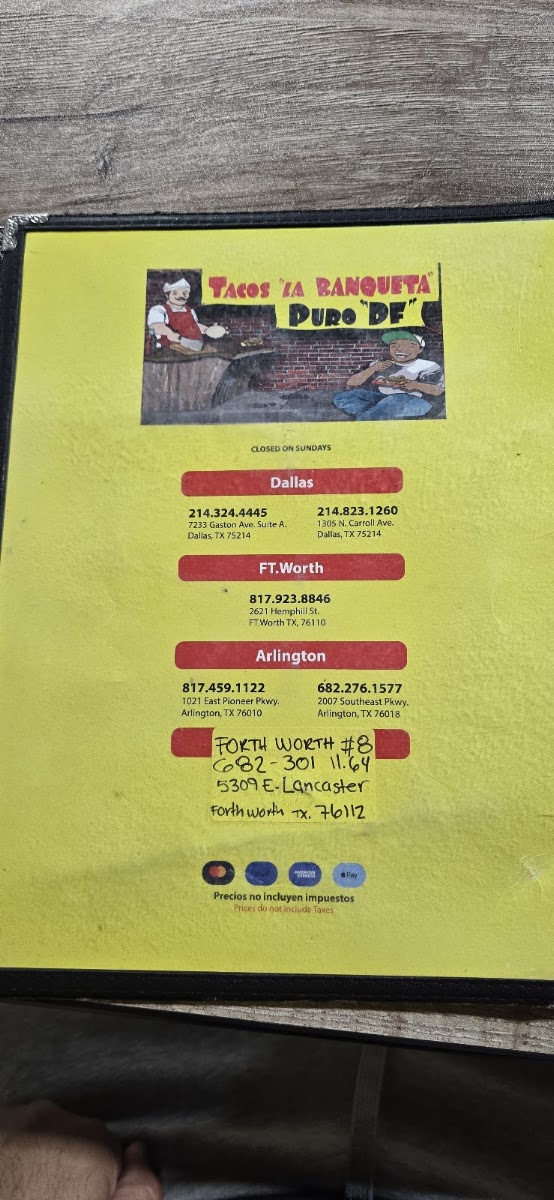 TACOS "LA BANQUETA"
PURO "DF"
CLOSED ON SUNDAYS
Dallas
214.324.4445
7233 Gaston Ave. Suite A.
Dallas, TX 75214
214.823.1260
1305 N. Carroll Ave.
Dallas, TX 75214
FT.Worth
817.923.8846
2621 Hemphill St.
FT.Worth TX, 76110
Arlington
817.459.1122
1021 East Pioneer Pkwy.
Arlington, TX 76010
682.276.1577
2007 Southeast Pkwy.
Arlington, TX 76018
FORTH WORTH #8
682-301 11.64
5309 E. Lancaster
Forth worth TX. 76112
AMERICAN EXPRESS
Pay
Precios no incluyen impuestos
Prices do not include Taxes